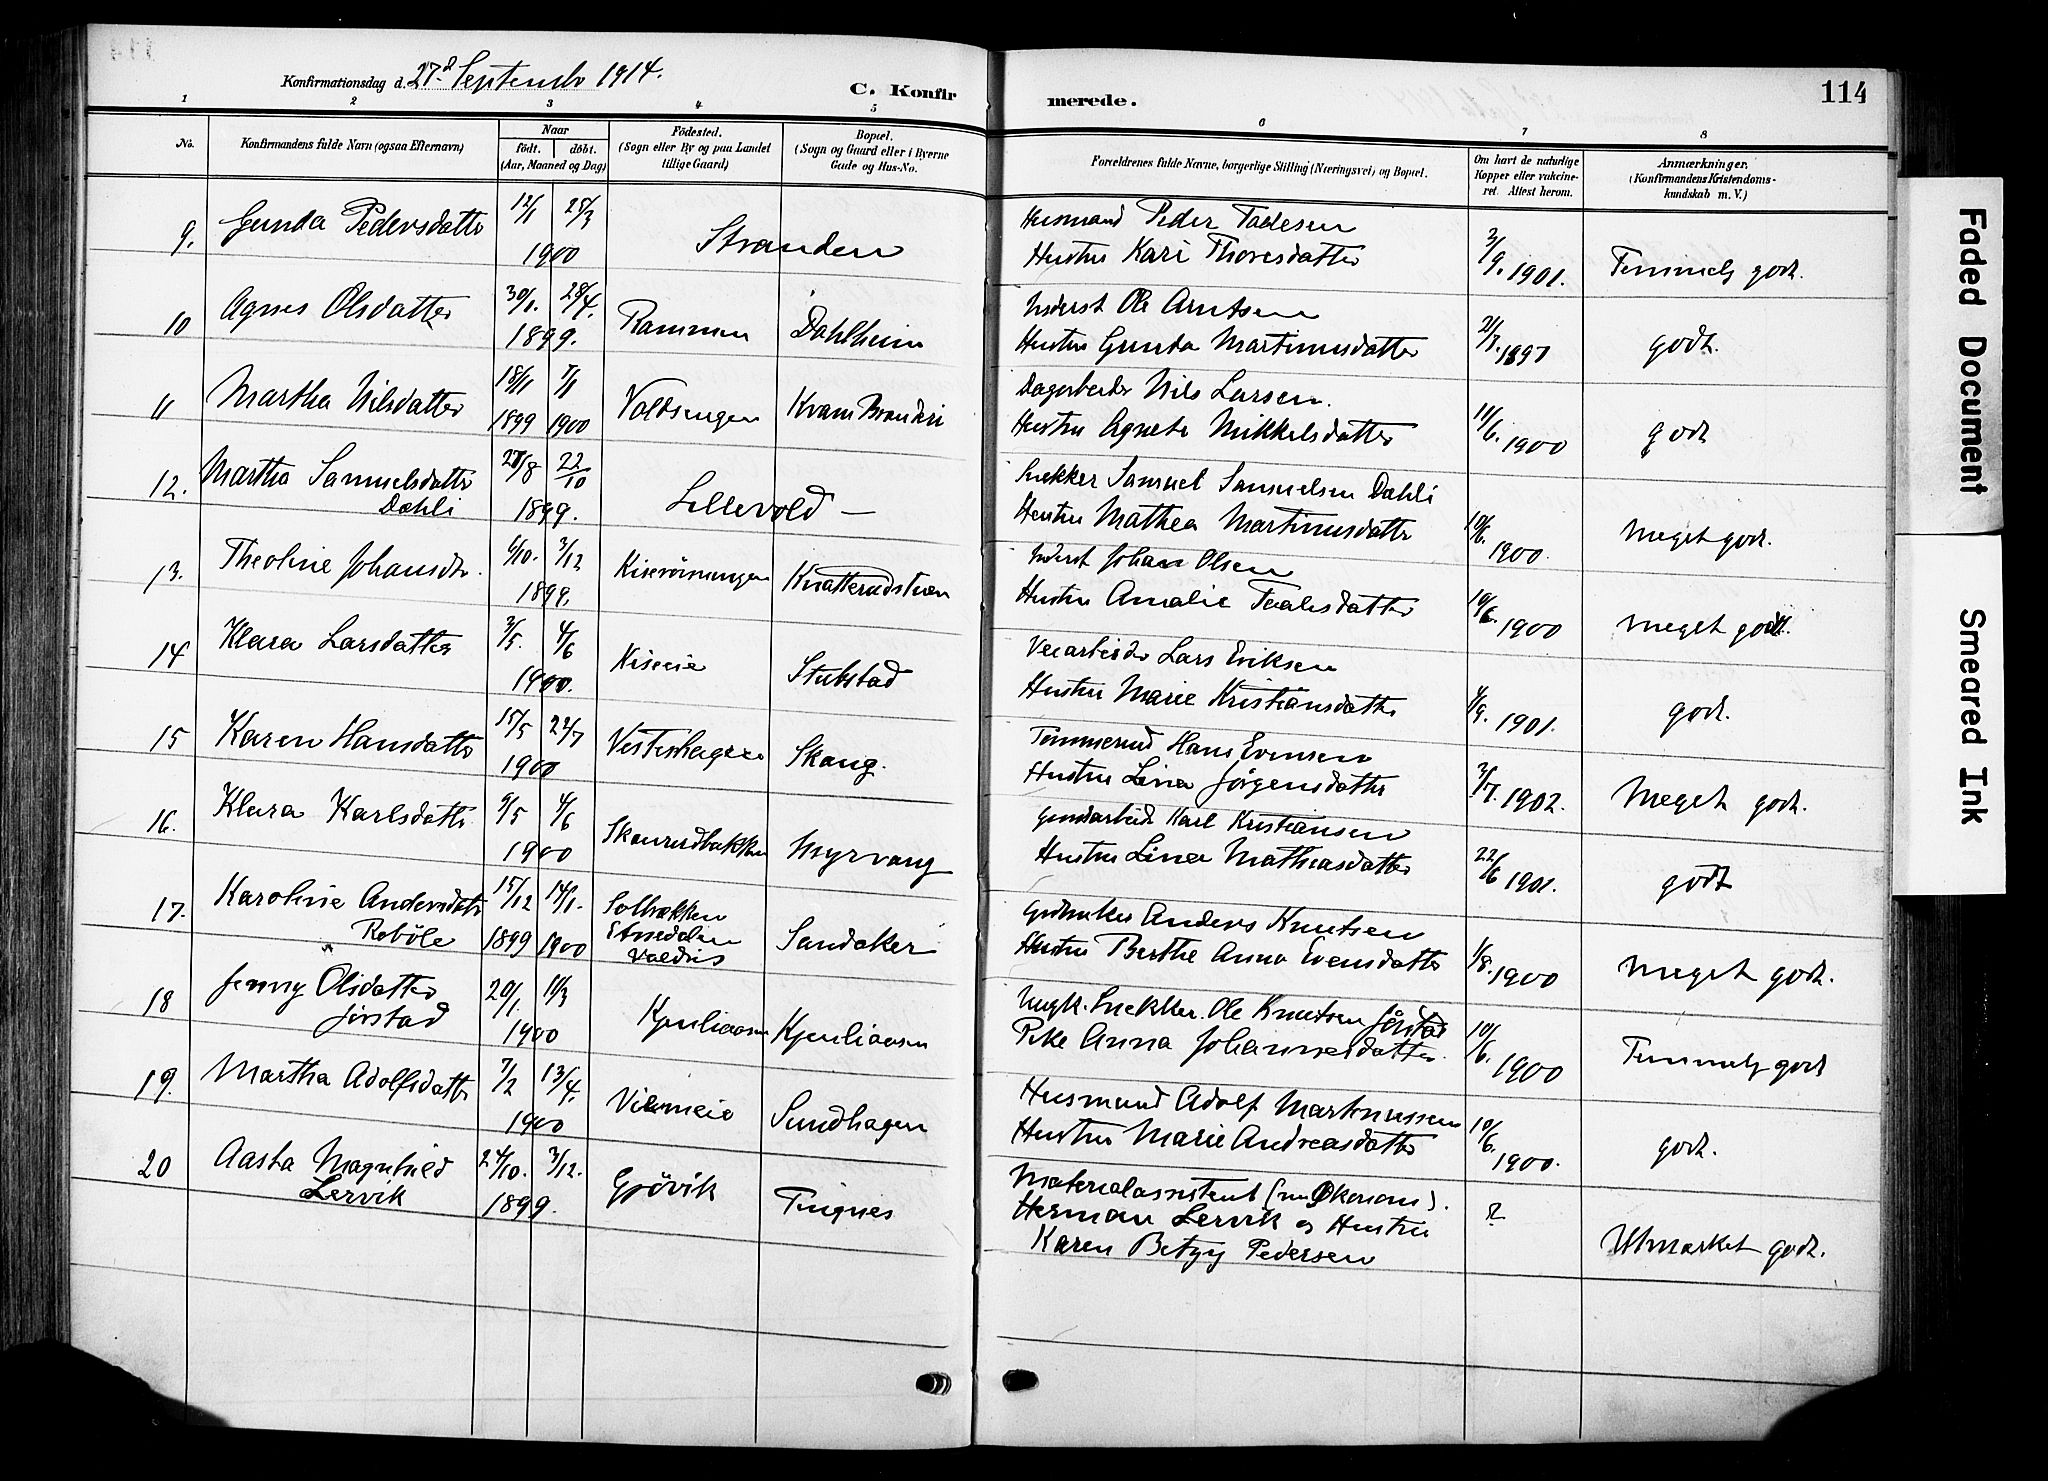 Konfirmationsdag d. 27d September 1914.
C. Konfirmerede.
114
1 2 3 4 5 6 7 8
No.
Konfirmandens fulde Navn (ogsaa Efternavn)
Naar
født. døbt.
(Aar, Maaned og Dag)
Fødested.
(Sogn eller By og paa Landet
tillige Gaard)
Bopæl.
(Sogn og Gaard eller i Byerne
Gade og Hus-No.
Forældrenes fulde Navne, borgerlige Stilling (Næringsvei) og Bopæl.
Om havt de naturlige
Kopper eller vakcineret.
Attest herom.
Anmærkninger.
(Konfirmandens Kristendomskundskab
m. V.)
9. Gunda Pedersdatter 12/1 25/3 1900 Stranden
Husmand Peder
Hustru Kari Thoresdatter 3/9. 1901. Temmelig godt.
10 Agnes Olsdatter 30/1. 28/4. 1899. Rammen Dahlheim
Inderst Ole Arntsen
Hustru Gunda Martinusdatter 1897 godt.
11 Martha Nilsdatter 18/11 7/1 1899 1900 Voldsengen Kvam
Dagarbeider Nils Larsen.
Hustru Agnete Mikkelsdatter 11/6. 1900 godt
12. Martha Samuelsdatter 27/8 22/10
Dæhli 1899. Lillevold —
Snekker Samuel Samuelsen Dæhli
Hustru Mathea Martinusdatter 10/6. 1900. Meget godt.
13. Theoline Johansdr. 6/10. 3/12 1899. Kiserønningen Knatterudstuen
Inderst Johan Olsen
Hustru Amalie 10/6. 1900 Meget godt.
14 Klara Larsdatter 3/5. 4/6 1900. Kiseeie Stubstad
Veiarbeider Lars Eriksen
Hustru Marie Kristiansdatter 4/9. 1901. godt.
15 Karen Hansdatter 15/5 22/7 1900 Vesterhagen Skaug.
Hans Evensen
Hustru Lina Jörgensdatter 3/7. 1902. Meget godt.
16. Klara Karlsdatter 9/5 4/6 1900 Skaurudbakken Myrvang
Karl Kristiansen
Hustru Lina Mathiasdatter 22/6 1901. godt
17. Karoline Andersdatter 15/12 14/1. Solbakken
Robøle 1899 1900 Etnedalen Sandaker
Valdris
Gårdbruker Anders Knutsen
Hustru Berthe Anna Evensdatter 1/8. 1900 Meget godt.
18 Jenny Olsdatter 20/1. 11/3
Jørstad 1900 Kjenliaasen Kjenliaasen
Ungk. Snekker. Ole Knutsen Jørstad
Pike Anna Johannesdatter. 10/6. 1900 Temmelig godt
19. Martha Adolfsdatter 7/2 13/4. 1900 Sundhagen
Husmand Adolf Martinussen
Hustru Marie Andreasdatter 10/6. 1900. godt.
20 Aasta Magnhild 24/10. 3/12.
Lervik 1899. Gjövik Tingnes
Materialassistent (nu Økonom).
Herman Lervik og Hustru ?
Karen Betzy Pedersen Utmærket godt.
Faded Document
Smeared Ink